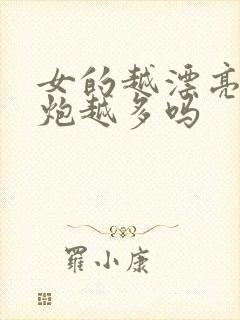 女的越漂亮
炮越多吗
羅小康